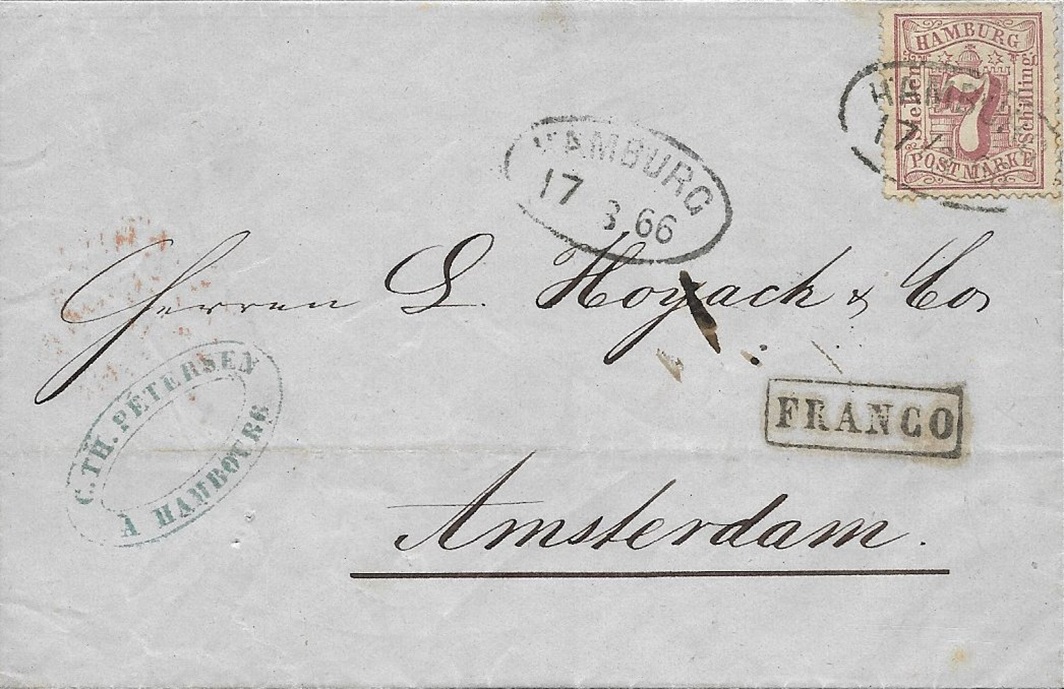 HAMBURG
Sieben
7
Schilling
POSTMARKE
HAMBURG
17
HAMBURG
17 3 66
Herren L. Hoyack & Co
C. TH. PETERSEN
À HAMBOURG
FRANCO
Amsterdam.